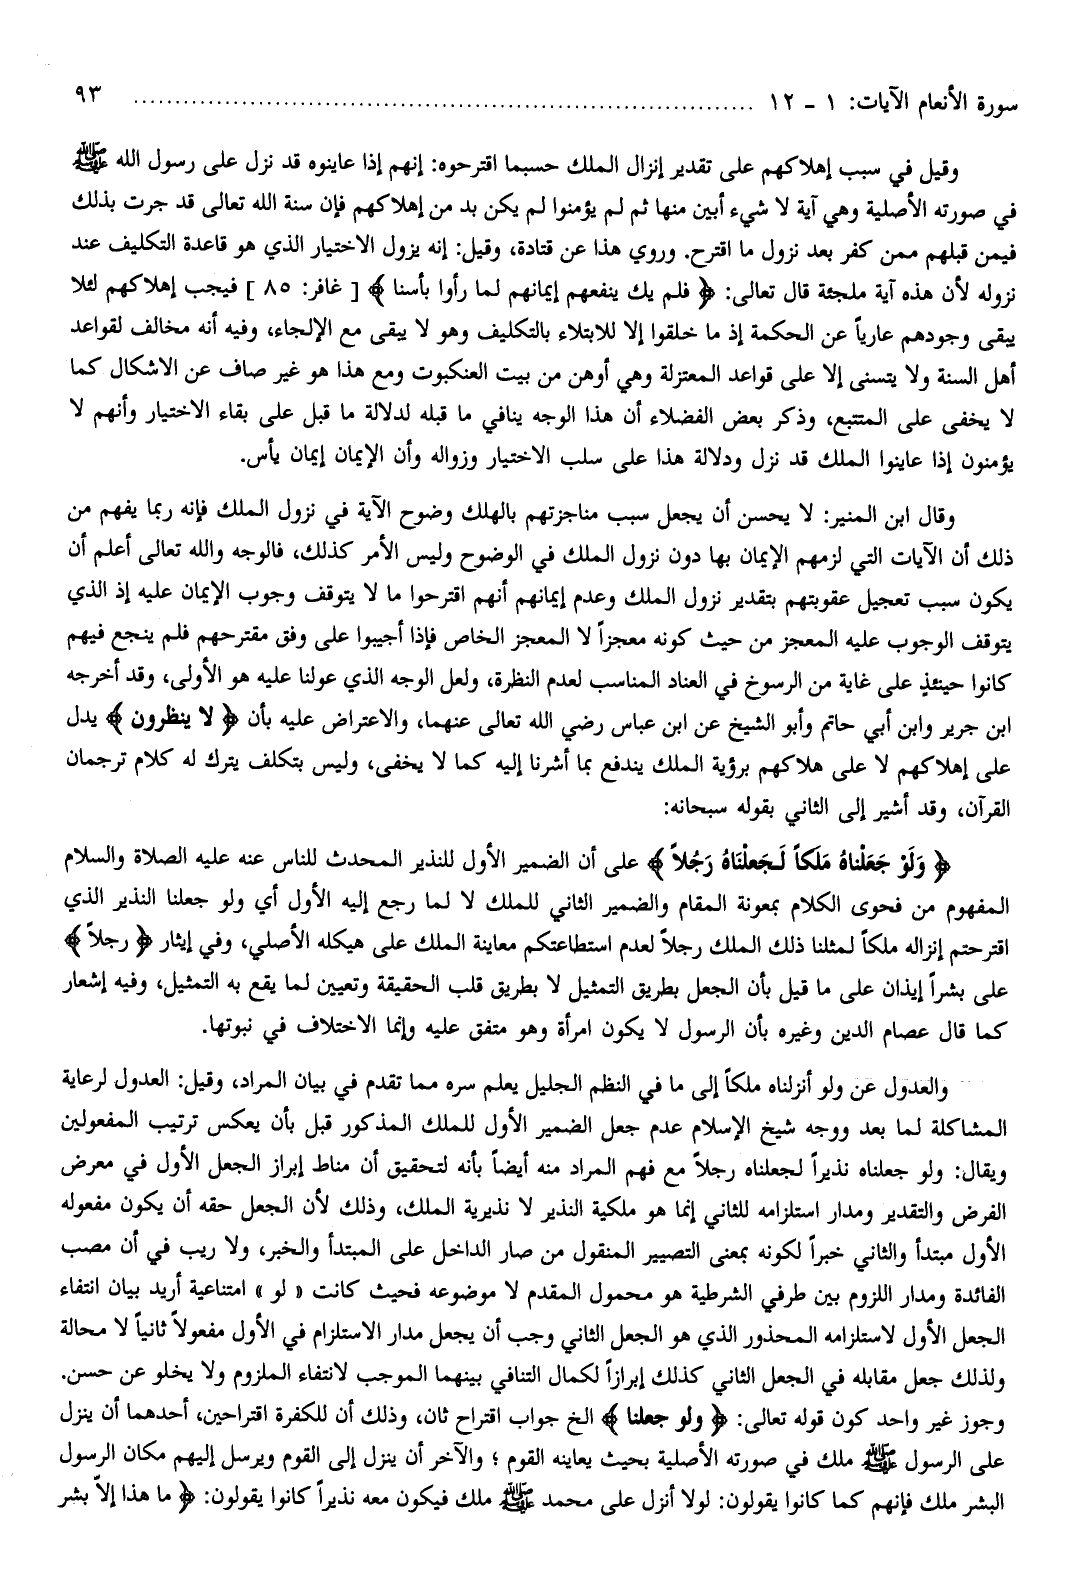 سورة الأنعام الآيات: ١ - ١٢ ........................................................................... ٩٣
وقيل في سبب إهلاكهم على تقدير إنزال الملك حسبما اقترحوه: إنهم إذا عاينوه قد نزل على رسول الله ﷺ
في صورته الأصلية وهي آية لا شيء أبين منها ثم لم يؤمنوا لم يكن بد من إهلاكهم فإن سنة الله تعالى قد جرت بذلك
فيمن قبلهم ممن كفر بعد نزول ما اقترح. وروي هذا عن قتادة، وقيل: إنه يزول الاختيار الذي هو قاعدة التكليف عند
نزوله لأن هذه آية ملجئة قال تعالى: ﴿ فلم يك ينفعهم إيمانهم لما رأوا بأسنا ﴾ [ غافر: ٨٥ ] فيجب إهلاكهم لئلا
يبقى وجودهم عارياً عن الحكمة إذ ما خلقوا إلا للابتلاء بالتكليف وهو لا يبقى مع الإلجاء، وفيه أنه مخالف لقواعد
أهل السنة ولا يتسنى إلا على قواعد المعتزلة وهي أوهن من بيت العنكبوت ومع هذا هو غير صاف عن الاشكال كما
لا يخفى على المتتبع، وذكر بعض الفضلاء أن هذا الوجه ينافي ما قبله لدلالة ما قبل على بقاء الاختيار وأنهم لا
يؤمنون إذا عاينوا الملك قد نزل ودلالة هذا على سلب الاختيار وزواله وأن الإيمان إيمان يأس.
وقال ابن المنير: لا يحسن أن يجعل سبب مناجزتهم بالهلك وضوح الآية في نزول الملك فإنه ربما يفهم من
ذلك أن الآيات التي لزمهم الإيمان بها دون نزول الملك في الوضوح وليس الأمر كذلك، فالوجه والله تعالى أعلم أن
يكون سبب تعجيل عقوبتهم بتقدير نزول الملك وعدم إيمانهم أنهم اقترحوا ما لا يتوقف وجوب الإيمان عليه إذ الذي
يتوقف الوجوب عليه المعجز من حيث كونه معجزاً لا المعجز الخاص فإذا أجيبوا على وفق مقترحهم فلم ينجع فيهم
كانوا حينئذٍ على غاية من الرسوخ في العناد المناسب لعدم النظرة، ولعل الوجه الذي عولنا عليه هو الأولى، وقد أخرجه
ابن جرير وابن أبي حاتم وأبو الشيخ عن ابن عباس رضي الله تعالى عنهما، والاعتراض عليه بأن ﴿ لا ينظرون ﴾ يدل
على إهلاكهم لا على هلاكهم برؤية الملك يندفع بما أشرنا إليه كما لا يخفى، وليس بتكلف يترك له كلام ترجمان
القرآن، وقد أشير إلى الثاني بقوله سبحانه:
﴿ وَلَوْ جَعَلْناهُ مَلَكاً لَجَعلْنَاهُ رَجُلاً ﴾ على أن الضمير الأول للنذير المحدث للناس عنه عليه الصلاة والسلام
المفهوم من فحوى الكلام بمعونة المقام والضمير الثاني للملك لا لما رجع إليه الأول أي ولو جعلنا النذير الذي
اقترحتم إنزاله ملكاً لمثلنا ذلك الملك رجلاً لعدم استطاعتكم معاينة الملك على هيكله الأصلي، وفي إيثار ﴿ رجلاً ﴾
على بشراً إيذان على ما قيل بأن الجعل بطريق التمثيل لا بطريق قلب الحقيقة وتعيين لما يقع به التمثيل، وفيه إشعار
كما قال عصام الدين وغيره بأن الرسول لا يكون امرأة وهو متفق عليه وإنما الاختلاف في نبوتها.
والعدول عن ولو أنزلناه ملكاً إلى ما في النظم الجليل يعلم سره مما تقدم في بيان المراد، وقيل: العدول لرعاية
المشاكلة لما بعد ووجه شيخ الإسلام عدم جعل الضمير الأول للملك المذكور قبل بأن يعكس ترتيب المفعولين
ويقال: ولو جعلناه نذيراً لجعلناه رجلاً مع فهم المراد منه أيضاً بأنه لتحقيق أن مناط إبراز الجعل الأول في معرض
الفرض والتقدير ومدار استلزامه للثاني إنما هو ملكية النذير لا نذيرية الملك، وذلك لأن الجعل حقه أن يكون مفعوله
الأول مبتدأ والثاني خبراً لكونه بمعنى التصيير المنقول من صار الداخل على المبتدأ والخبر، ولا ريب في أن مصب
الفائدة ومدار اللزوم بين طرفي الشرطية هو محمول المقدم لا موضوعه فحيث كانت « لو » امتناعية أريد بيان انتفاء
الجعل الأول لاستلزامه المحذور الذي هو الجعل الثاني وجب أن يجعل مدار الاستلزام في الأول مفعولاً ثانياً لا محالة
ولذلك جعل مقابله في الجعل الثاني كذلك إبرازاً لكمال التنافي بينهما الموجب لانتفاء الملزوم ولا يخلو عن حسن.
وجوز غير واحد كون قوله تعالى: ﴿ ولو جعلنا ﴾ الخ جواب اقتراح ثان، وذلك أن للكفرة اقتراحين، أحدهما أن ينزل
على الرسول ﷺ ملك في صورته الأصلية بحيث يعاينه القوم ؛ والآخر أن ينزل إلى القوم ويرسل إليهم مكان الرسول
البشر ملك فإنهم كما كانوا يقولون: لولا أنزل على محمد ﷺ ملك فيكون معه نذيراً كانوا يقولون: ﴿ ما هذا إلاّ بشر